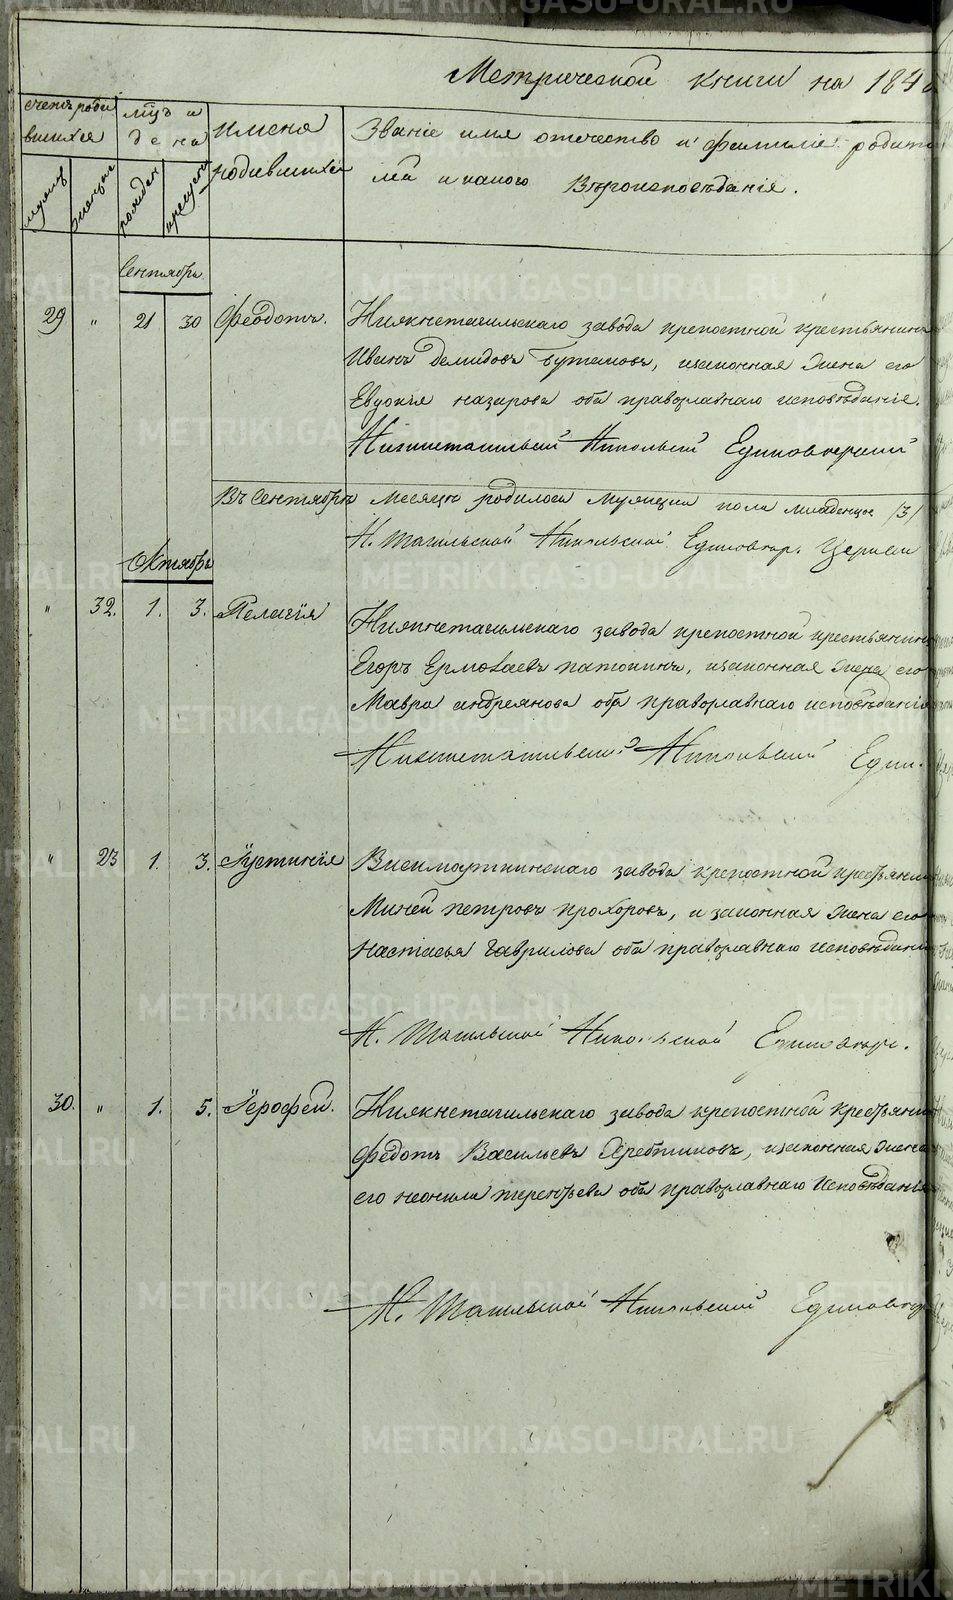 Метрической книги на 184
счетъ роди
вшихся
мць и
день
имена
родившихся
Званіе имя отечество и фамиліе родите
лей и какого вѣроисповѣданія.
мужеск
женска
рожден
крещен
Сентябрь
29 " 21 30 Феодотъ. Нижнетагильскаго завода крепостной крестьянинъ
Иванъ Демидовъ Бутаковъ, изаконная жена его
Евдокія назарова оба православнаго исповѣданія.
Нижнетагильской Никольской Единоверческий
Въ Сентябрѣ месяцѣ родилося мужеска пола младенца /3/
Н. Тагильской Никольской Единовер. Церкви
Октябрь
" 32. 1. 3. Пелагія Нижнетагильскаго завода крепостной крестьянинъ
Егоръ Ермолаевъ патокинъ, изаконная жена его
Мавра андреянова оба православнаго исповѣданія
Нижнетагильский Никольский Един.
" 23 1. 3. Іустинія Висимоуткинскаго завода крепостной крестьяни
Миней петровъ прохоровъ, и законная жена его
настасья Гаврилова оба православнаго исповѣдани
Н. Тагильской Никольской Единовер.
30. " 1. 5. Іерофей. Нижнетагильскаго завода крепостной крестьяни
Федотъ Васильевъ Хребтиковъ, изаконная жена
его неонила терентьева оба православнаго исповѣданія
Н. Тагильской Никольский Единовер
METRIKI.GASO-URAL.RU